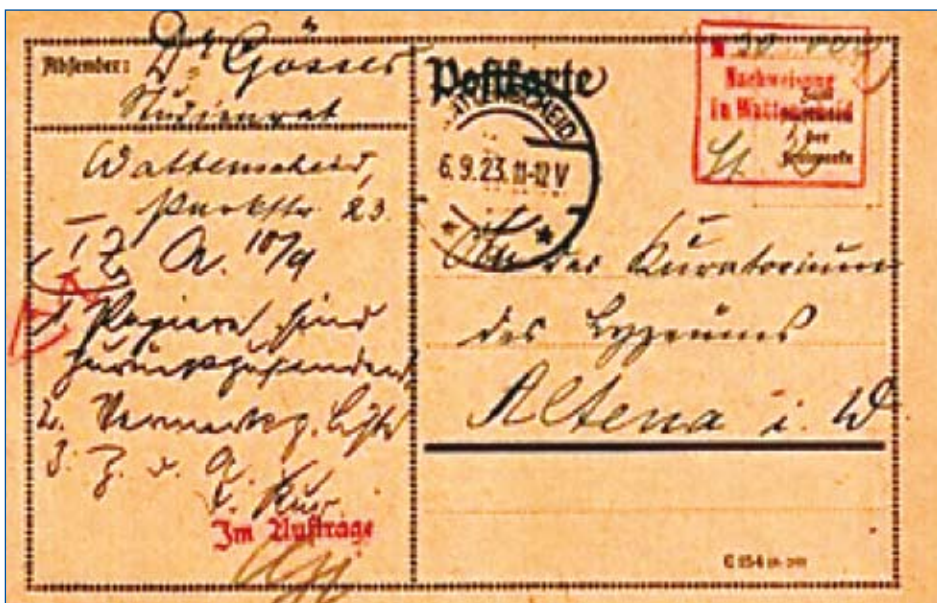 Absender: Dr. Gösser
Studienrat
Wattenscheid,
Parkstr. 23.
A. 10/9
1. Papiere sind
zurückzusenden
2.
3. Z. d. A.
Im Auftrage
Postkarte
WATTENSCHEID
6.9.23. 11-12 V
Nachweisung
in Wattenscheid
der
Freimarke
An das Kuratorium
des Lyzeums
Altena i. W
C 154